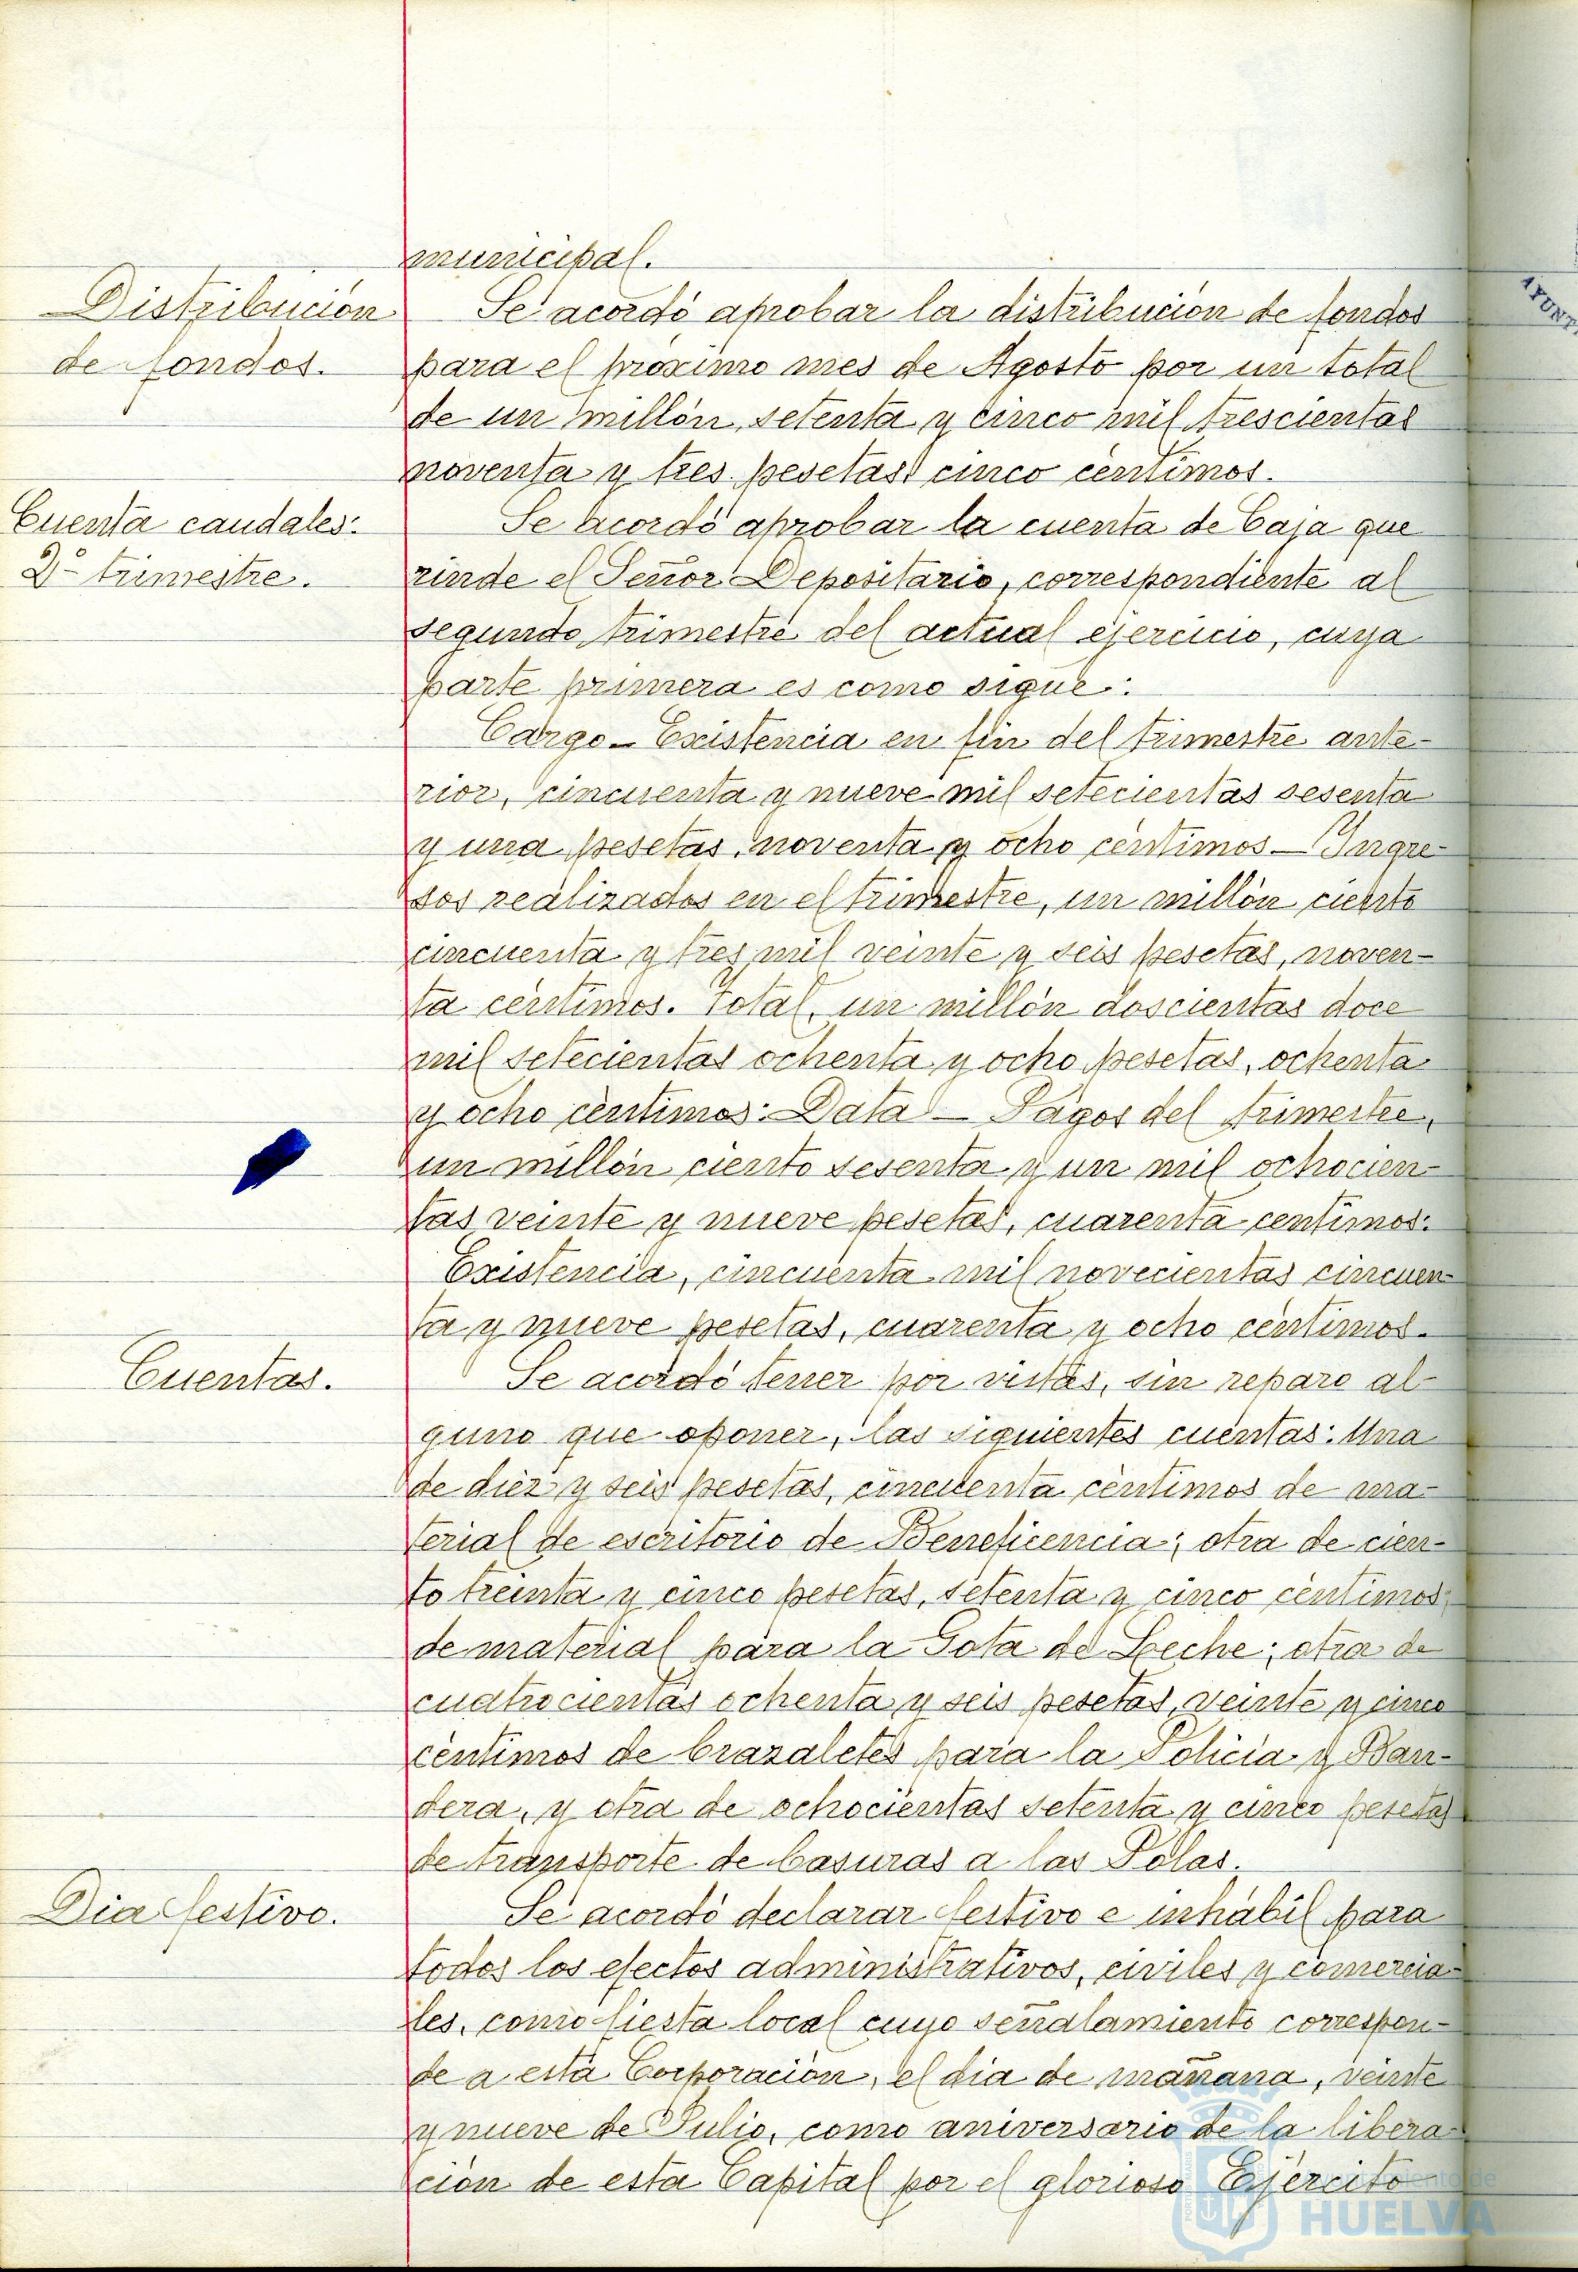 municipal.
Distribución
de fondos.
Se acordó aprobar la distribución de fondos
para el próximo mes de Agosto por un total
de un millón, setenta y cinco mil trescientas
noventa y tres pesetas cinco céntimos.
Cuenta caudales:
2º trimestre.
Se acordó aprobar la cuenta de Caja que
rinde el Señor Depositario, correspondiente al
segundo trimestre del actual ejercicio, cuya
parte primera es como sigue:
Cargo - Existencia en fin del trimestre ante-
rior, cincuenta y nueve mil setecientas sesenta
y una pesetas, noventa y ocho céntimos - Ingre-
sos realizados en el trimestre, un millón ciento
cincuenta y tres mil veinte y seis pesetas, noven-
ta céntimos. Total, un millón doscientas doce
mil setecientas ochenta y ocho pesetas, ochenta
y ocho céntimos: Data - Pagos del trimestre,
un millón ciento sesenta y un mil ochocien-
tas veinte y nueve pesetas, cuarenta centimos:
Existencia, cincuenta mil novecientas cincuen-
ta y nueve pesetas, cuarenta y ocho céntimos.
Cuentas.
Se acordó tener por vistas, sin reparo al-
guno que oponer, las siguientes cuentas: Una
de diez y seis pesetas, cincuenta céntimos de ma-
terial de escritorio de Beneficencia; otra de cien-
to treinta y cinco pesetas, setenta y cinco céntimos
de material para la Gota de Leche; otra de
cuatrocientas ochenta y seis pesetas, veinte y cinco
céntimos de brazaletes para la Policía y Ban-
dera, y otra de ochocientas setenta y cinco pesetas
de transporte de basuras a las Polas.
Dia festivo.
Se acordó declarar festivo e inhábil para
todos los efectos administrativos, civiles y comercia-
les, como fiesta local cuyo señalamiento correspon-
de a esta Corporación, el día de mañana, veinte
y nueve de Julio, como aniversario de la libera-
ción de esta Capital por el glorioso Ejército
Ayuntamiento de
HUELVA
AYUNT